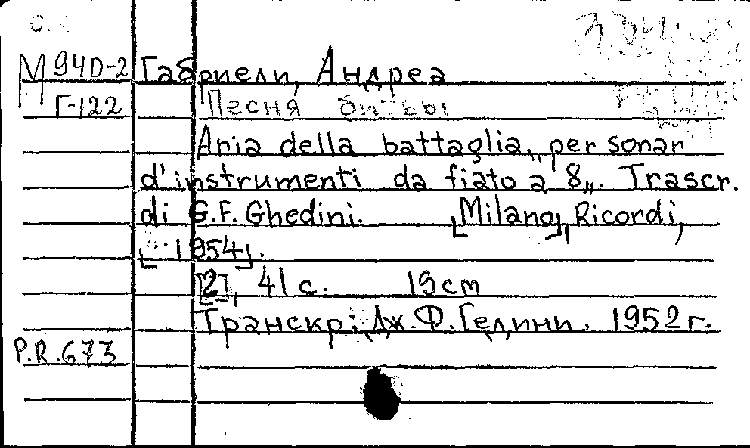 М 940-2 Габриели, Андреа
Г-122 Песня битвы
Aria della battaglia „per sonar
d'instrumenti da fiato a 8„. Trascr.
di G.F. Ghedini. [Milano], Ricordi,
[1954].
[2], 41 с. 19 см
Транскр.: Дж. Ф. Гедини. 1952 г.
P.R.673